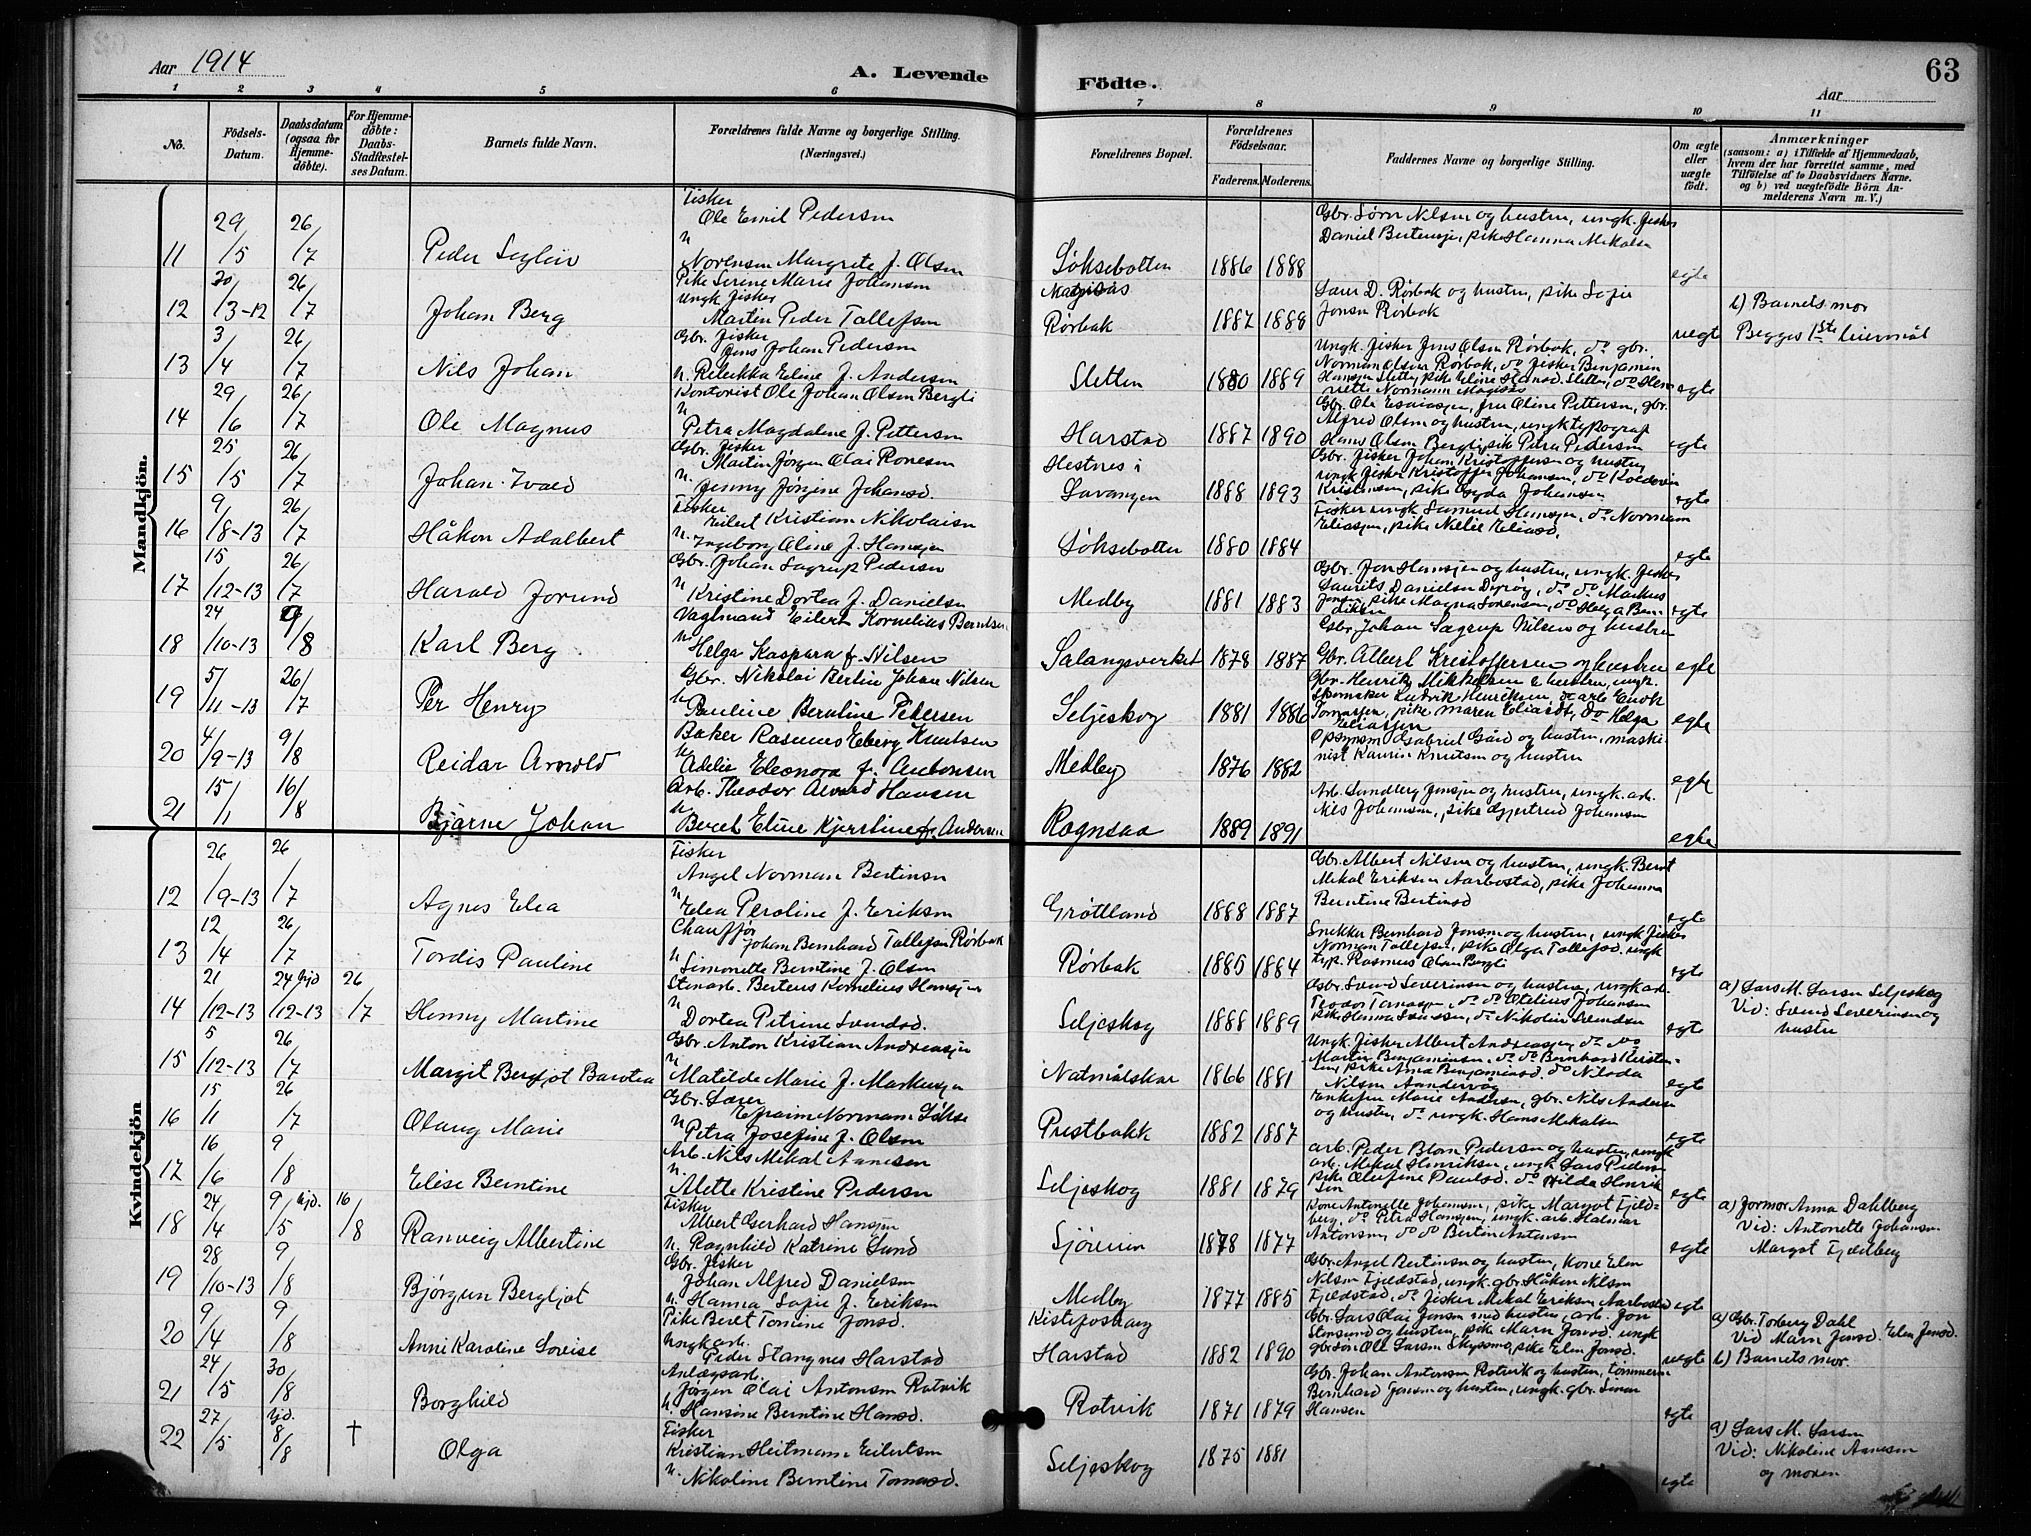 Aar 1914
A. Levende
Födte.
Aar
63
1 2 3 4 5 6 7 8 9 10 11
No.
Födsels-Datum.
Daabsdatum (ogsaa for Hjemmedöbte).
For Hjemmedöbte: Daabs-Stadfæstelses Datum.
Barnets fulde Navn.
Forældrenes fulde Navne og borgerlige Stilling.
(Næringsvei.)
Forældrenes Bopæl.
Forældrenes Födselsaar.
Faderens. Moderens.
Faddernes Navne og borgerlige Stilling.
Om ægte eller uægte födt.
Anmærkninger
(saasom: a) i Tilfælde af Hjemmedaab, hvem der har forrettet samme, med Tilföielse af to Daabsvidners Navne. og b) ved uægtefödte Börn Anmelderens Navn m. V.)
Mandkjön.
11 29/5 26/7 Peder
Fisker Ole Emil Pedersen
Margrete f. Olsen
1886 1888
Gbr. Sørn Nilsen og hustru, ungk. fisker
egte
12 30/3-12 26/7 Johan Berg
Pike Serine Marie Johansen
Ungk fisker
Martin Peder Tallefsen
Rørbak 1887 1888
Lærer D. Rørbak og hustru, pike Sofie
Jensen Rørbak
uegte
b) Barnets mor
Begges 1ste leiermål
13 3/4 26/7 Nils Johan
Gbr. fisker
Jens Johan Pedersen
h. Rebekka Eline f. Andersen
Sletten 1880 1889
Ungk. fisker Jens Olsen Rørbak, do gbr.
Normann Olsen Rørbak, do fisker Benjamin
egte
14 29/6 26/7 Ole Magnus
Kontorist Ole Johan Olsen Bergli
h Petra Magdalene f. Pettersen
Harstad 1887 1890
Gbr. Ole Esaiassen, fru Oline Pettersen, gbr.
Alfred Olsen og hustru, ungk typograf
Hans Olsen Bergli, pike Petra Pedersen
egte
15 25/5 26/7 Johan Ivald
Gbr. fisker
Martin Jørgen Olai Ronesen
h. Jenny Jørgine Johansd.
Hestnes i
Lavangen 1888 1893
Gbr. fisker Johan Kristoffersen og hustru
ungk fisker Kristoffer Johansen, do
Kristensen, pike Gyda Johansen
egte
16 9/8-13 26/7 Håkon Adalbert
Fisker
Eilert Kristian Nikolaisen
h. Ingeborg Oline f. Hansen
1880 1884
Fisker ungk Samuel Hansen, do Normann
Eliassen, pike Nelie Eliasd.
egte
17 15/12-13 26/7 Harald Jorund
Gbr. Johan Sagrup Pedersen
h Kristine Dortea f. Danielsen
Medby 1881 1883
Gbr. Jon Hansen og hustru, ungk. fisker
Laurits Danielsen Dyrøy, do do Markus
Jensen, pike Magna Sørensen, do Helga
egte
18 24/10-13 9/8 Karl Berg
Vagtmand Eilert Kornelius Berntsen
h. Helga Kaspara f. Nilsen
Salangsverket 1878 1887
Gbr. Johan Sagrup Nilsen og hustru
Gbr. Albert Kristoffersen og hustru
egte
19 5/11-13 26/7 Per Henry
Gbr. Nikolai Bertin Johan Nilsen
h Pauline Berntine Pedersen
Seljeskog 1881 1886
Gbr. Henrik Mikkelsen & hustru, ungk.
Skomaker Ludvik Henriksen, do arb. Enok
Tomassen, pike Maren Eliasdt, do Helga
Eliassen
egte
20 4/9-13 9/8 Reidar Arnold
Baker Rasmus Eberg Knutsen
h. Adelie Eleonora f. Antonsen
Medby 1876 1882
Opsynsm Gabriel Gård og hustru, maski-
nist Knutsen og hustru
egte
21 15/1 16/8 Bjarne Johan
Arb. Theodor Hansen
h Beret Eline Kjerstine f. Andersen
Rognsaa 1889 1891
Arb. Lundberg Jensen og hustru, ungk. arb.
Nils Johansen, pike Gjertrud Johansen
egte
Kvindekjön
12 26/9-13 26/7 Agnes Elea
Fisker
Angel Norman Bertinsen
h Elea Peroline f. Eriksen
Grøttland 1888 1887
Gbr. Albert Nilsen og hustru, ungk. Bernt
Mikal Eriksen Aarbostad, pike Johanna
Berntine Bertinsd
egte
13 12/4 26/7 Tordis Pauline
Chauffør
Johan Bernhard Tallefsen Rørbak
h Simonette Berntine f. Olsen
Rørbak 1885 1884
Snekker Bernhard Jensen og hustru, ungk. fisker
Norman Tallefsen, pike Olga Tallefsd. ungk
typ. Rasmus Olsen Bergli
egte
14 21/12-13 24 hjd/12-13 26/7 Henny Martine
Stenarb. Berteus Kornelius Hansen
h Dortea Petrine Svendsd.
Seljeskog 1888 1889
Gbr. Svend Severinsen og hustru, ungk. ar.
Teodor Tomassen, do do Otelius Johansen
pike Hanna Svendsen, do Nikolin Svendsen
egte
a) Lars M. Larsen Seljeskog
Vid: Svend Severinsen og
hustru
15 5/12-13 26/7 Margit Bergljot
Gbr. Anton Kristian Andreassen
h Matilde Marie f. Markussen
1866 1881
Ungk. fisker Albert Andreassen, do do
Martin Benjaminsen, do do Bernhard Kristen-
sen, pike Anna Benjaminsd. do Nilada
Nilsen
egte
16 15/1 26/7 Olaug Marie
Gbr. Lærer
Efraim Normann Løkse
h Petra Josefine f. Olsen
Prestbakk 1882 1887
Enkefru Marie Andersen, gbr. Nils Andersen
og hustru, do ungk. Hans Mikalsen
egte
17 16/6 9/8 Elise Berntine
Arb. Nils Mikal Arnesen
h. Alette Kristine Pedersen
Seljeskog 1881 1879
arb. Peder Blom Pedersen og hustru, ungk
arb. Mikal Henriksen, ungk Lars Pedersen
pike Olufine Paulsd. do Hilda Henrik
sen
egte
18 24/4 9 hjd./5 16/8 Ranveig Albertine
Fisker
Albert Gerhard Hansen
h. Ragnhild Katrine Lund
Sjøveien 1878 1877
Kone Antonette Johansen, pike Margot Fjeld-
berg, do Petra Hansen, ungk. arb. Halmar
Antonsen, do do Bertin Antonsen
egte
a) Jormor Anna Dahlberg
Vid: Antonette Johansen
Margot Fjeldberg
19 28/10-13 9/8 Bjørgun Bergljot
Gbr. fisker
Johan Alfred Danielsen
h. Hanna Sofie f. Eriksen
Medby 1877 1885
Gbr Angel Bertinsen og hustru, Kone Elen
Nilsen Fjeldstad, ungk. gbr. Håkon Nilsen
Fjeldstad, do fisker Mikal Eriksen Aarbostad
egte
20 9/4 9/8 Anne Karoline Lovise
Pike Beret Tomine Jonsd.
Ungk arb.
Peder Stangnes Harstad
Harstad 1882 1890
Gbr. Lars Olai Jensen med hustru, arb. Jon
Stensund og hustru, pike Marn Jonsd. ungk
gbrsøn Ole Larsen Skyssmo, pike Elen Jonsd.
uegte
a) Gbr. Toberg Dahl
Vid Marn Jensd. Elen Jensd.
b) Barnets mor.
21 24/5 30/8 Borghild
Anlægsarb.
Jørgen Olai Antonsen Rotvik
h. Hansine Berntine Hansd.
Rotvik 1871 1879
Gbr. Johan Antonsen Rotvik og hustru, tømmerm
Bernhard Jensen og hustru, ungk. gbr. Simon
Hansen
egte
22 27/5 hjd. 8/8 † Olga
Fisker
Kristian Heitmann Eilertsen
h. Nikoline Berntine Tomasd.
Seljeskog 1875 1881
egte
a) Lars M. Larsen
Vid: Nikoline Arnesen
og moren